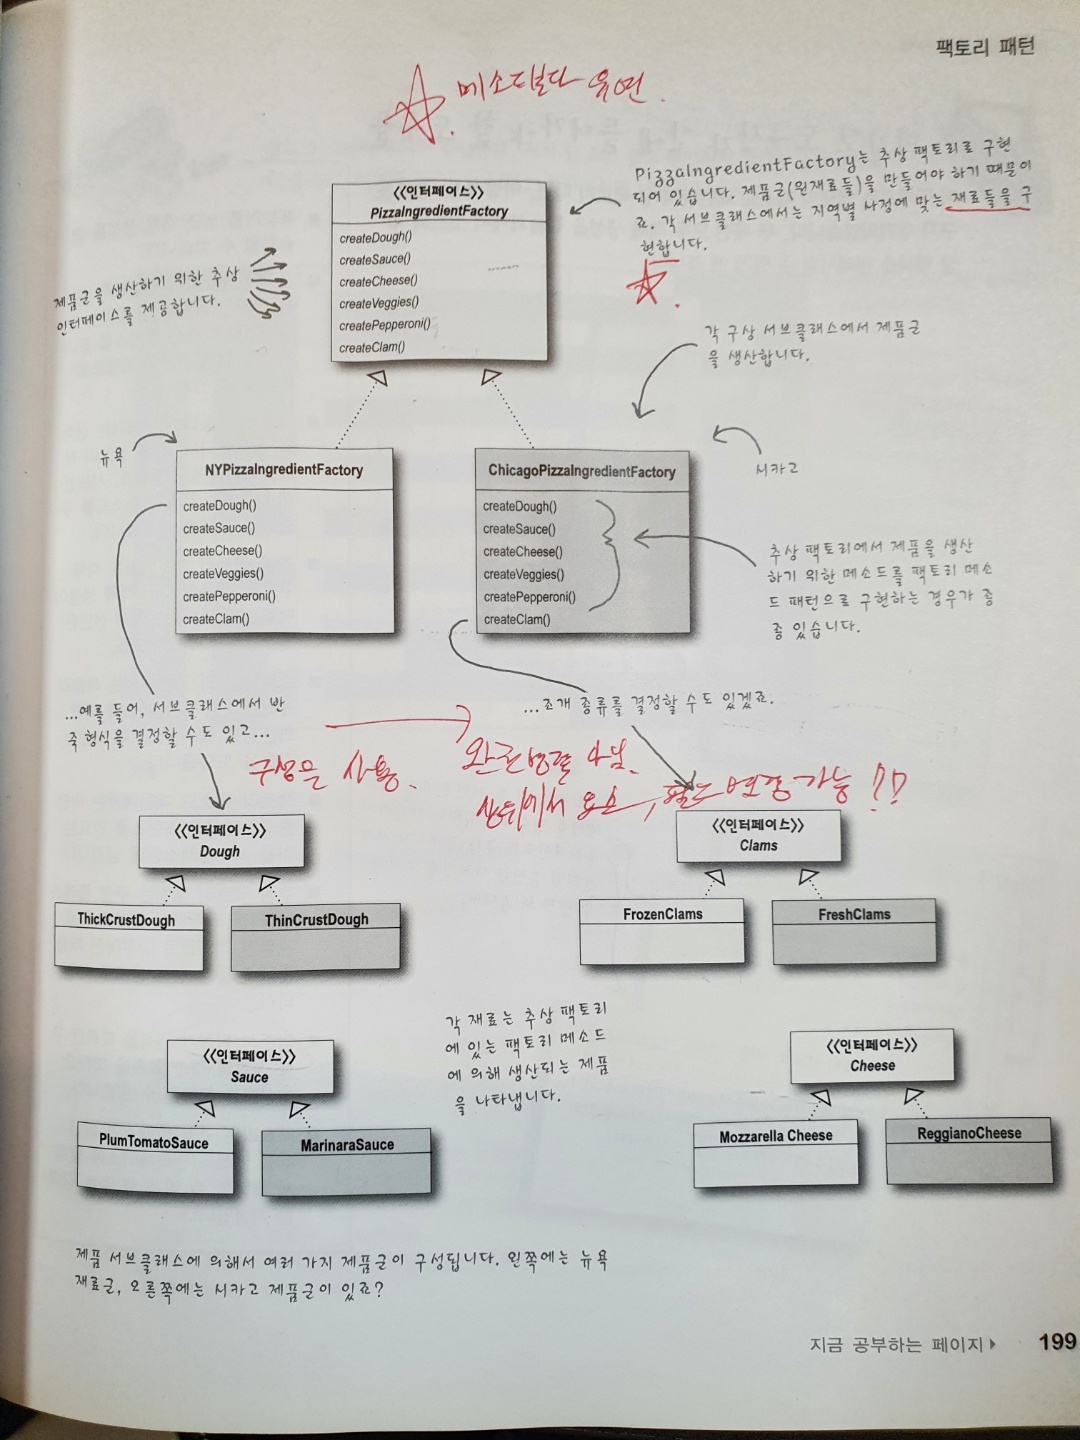 팩토리 패턴
메소드보다 유연.
PizzaIngredientFactory는 추상 팩토리로 구현
되어 있습니다. 제품군(원재료들)을 만들어야 하기 때문이
죠. 각 서브클래스에서는 지역별 사정에 맞는 재료들을 구
현합니다.
<<인터페이스>>
PizzaIngredientFactory
createDough()
createSauce()
createCheese()
createVeggies()
createPepperoni()
createClam()
제품군을 생산하기 위한 추상
인터페이스를 제공합니다.
각 구상 서브클래스에서 제품군
을 생산합니다.
뉴욕
시카고
NYPizzaIngredientFactory
createDough()
createSauce()
createCheese()
createVeggies()
createPepperoni()
createClam()
ChicagoPizzaIngredientFactory
createDough()
createSauce()
createCheese()
createVeggies()
createPepperoni()
createClam()
추상 팩토리에서 제품을 생산
하기 위한 메소드를 팩토리 메소
드 패턴으로 구현하는 경우가 종
종 있습니다.
...예를 들어, 서브클래스에서 반
죽 형식을 결정할 수도 있고...
...조개 종류를 결정할 수도 있겠죠.
구성을 사용.
아님.
상위에서 요소, 필드 변경 가능!?
<<인터페이스>>
Dough
ThickCrustDough
ThinCrustDough
<<인터페이스>>
Clams
FrozenClams
FreshClams
각 재료는 추상 팩토리
에 있는 팩토리 메소드
에 의해 생산되는 제품
을 나타냅니다.
<<인터페이스>>
Sauce
PlumTomatoSauce
MarinaraSauce
<<인터페이스>>
Cheese
Mozzarella Cheese
ReggianoCheese
제품 서브클래스에 의해서 여러 가지 제품군이 구성됩니다. 왼쪽에는 뉴욕
재료군, 오른쪽에는 시카고 제품군이 있죠?
지금 공부하는 페이지 199